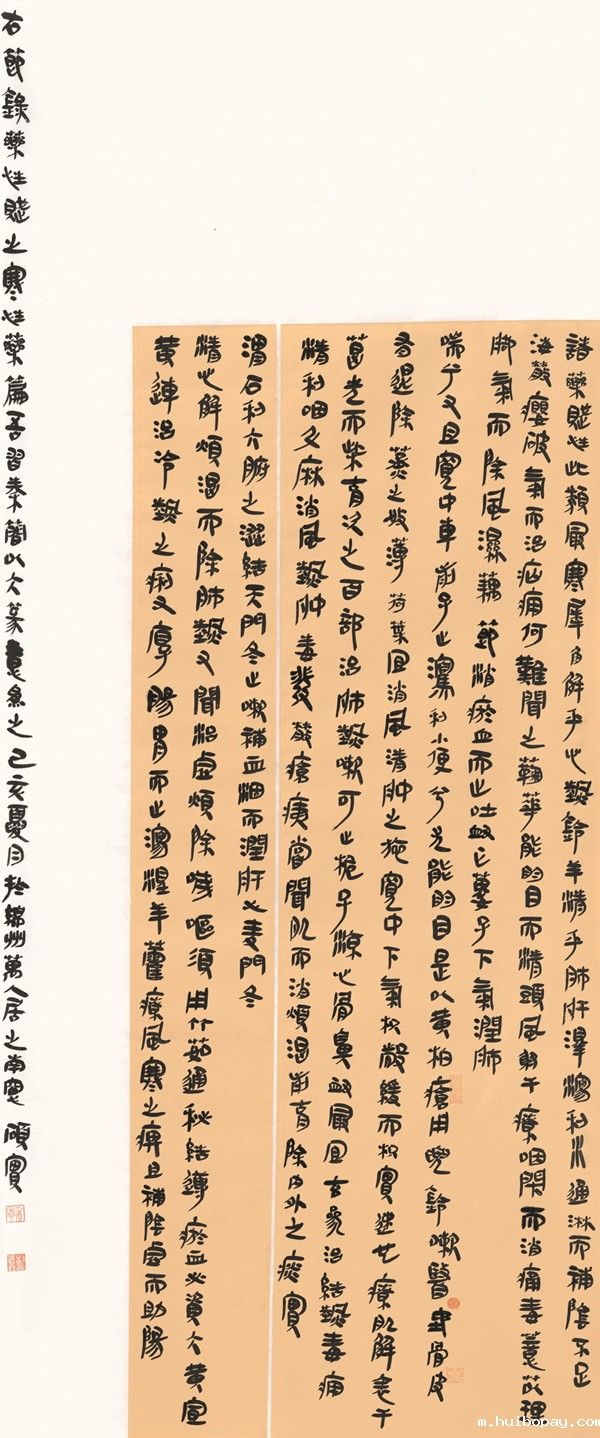 諸藥賦性此類最寒犀角解乎心熱羚羊清乎肺肝澤瀉利水通淋而補陰不足
海藻癭破氣而治疝痛何難聞之菊華能明目而清頭風射干療咽閉而消癰毒薏苡理
腳氣而除風濕藕節消瘀血而止吐衄瓜蔞子下氣潤肺
喘兮又且寬中車前子止瀉利小便兮尤能明目是以黃柏瘡用兜鈴嗽醫地骨皮
有退除蒸之效薄荷葉宜消風清腫之施寬中下氣枳殼緩而枳實速也療肌解表干
葛先而柴胡次之百部治肺熱嗽可止梔子涼心腎鼻衄最宜玄參治結熱毒癰
清利咽升麻消風熱腫毒發散瘡痍嘗聞肌而消煩渴前胡除內外之痰實
滑石利六腑之澀結天門冬止嗽補血涸而潤肝心麥門冬
清心解煩渴而除肺熱又聞治虛煩除噦嘔須用竹茹通秘結導瘀血必資大黃宣
黃連治冷熱之痢又厚腸胃而止瀉淫羊藿療風寒之痹且補陰虛而助陽
右節錄藥性賦之寒性藥篇吾習秦簡以大篆意為之己亥夏月於端州萬人居之南窗 碩實
m.huibopay.com